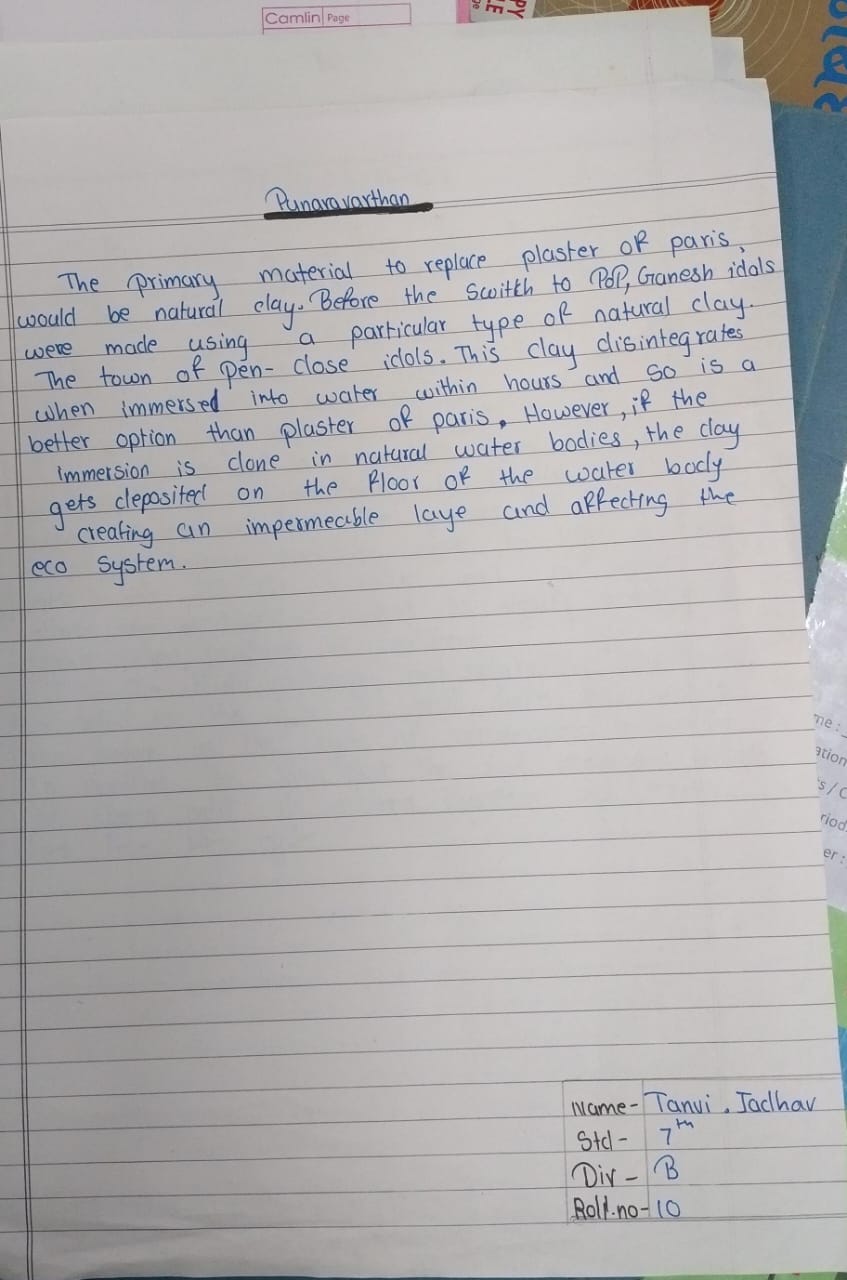 Camlin Page
Punaravarthan
The primary material to replace plaster of paris,
would be natural clay. Before the Switth to PoP, Ganesh idols
were made using a particular type of natural clay.
The town of pen- close idols. This clay disintegrates
when immersed into water within hours and so is a
better option than plaster of paris. However, if the
immersion is done in natural water bodies, the clay
gets deposited on the floor of the water body
creating an impermeable laye and affecting the
eco system.
Name- Tanvi. Jadhav
Std- 7th
Div- B
Roll.no- 10